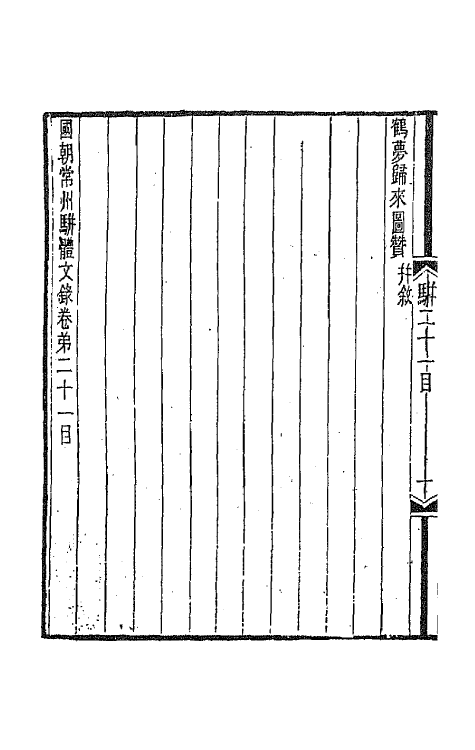 鶴夢歸來圖贊并敘
國朝常州駢體文錄卷弟二十一目
駢二十一目
十